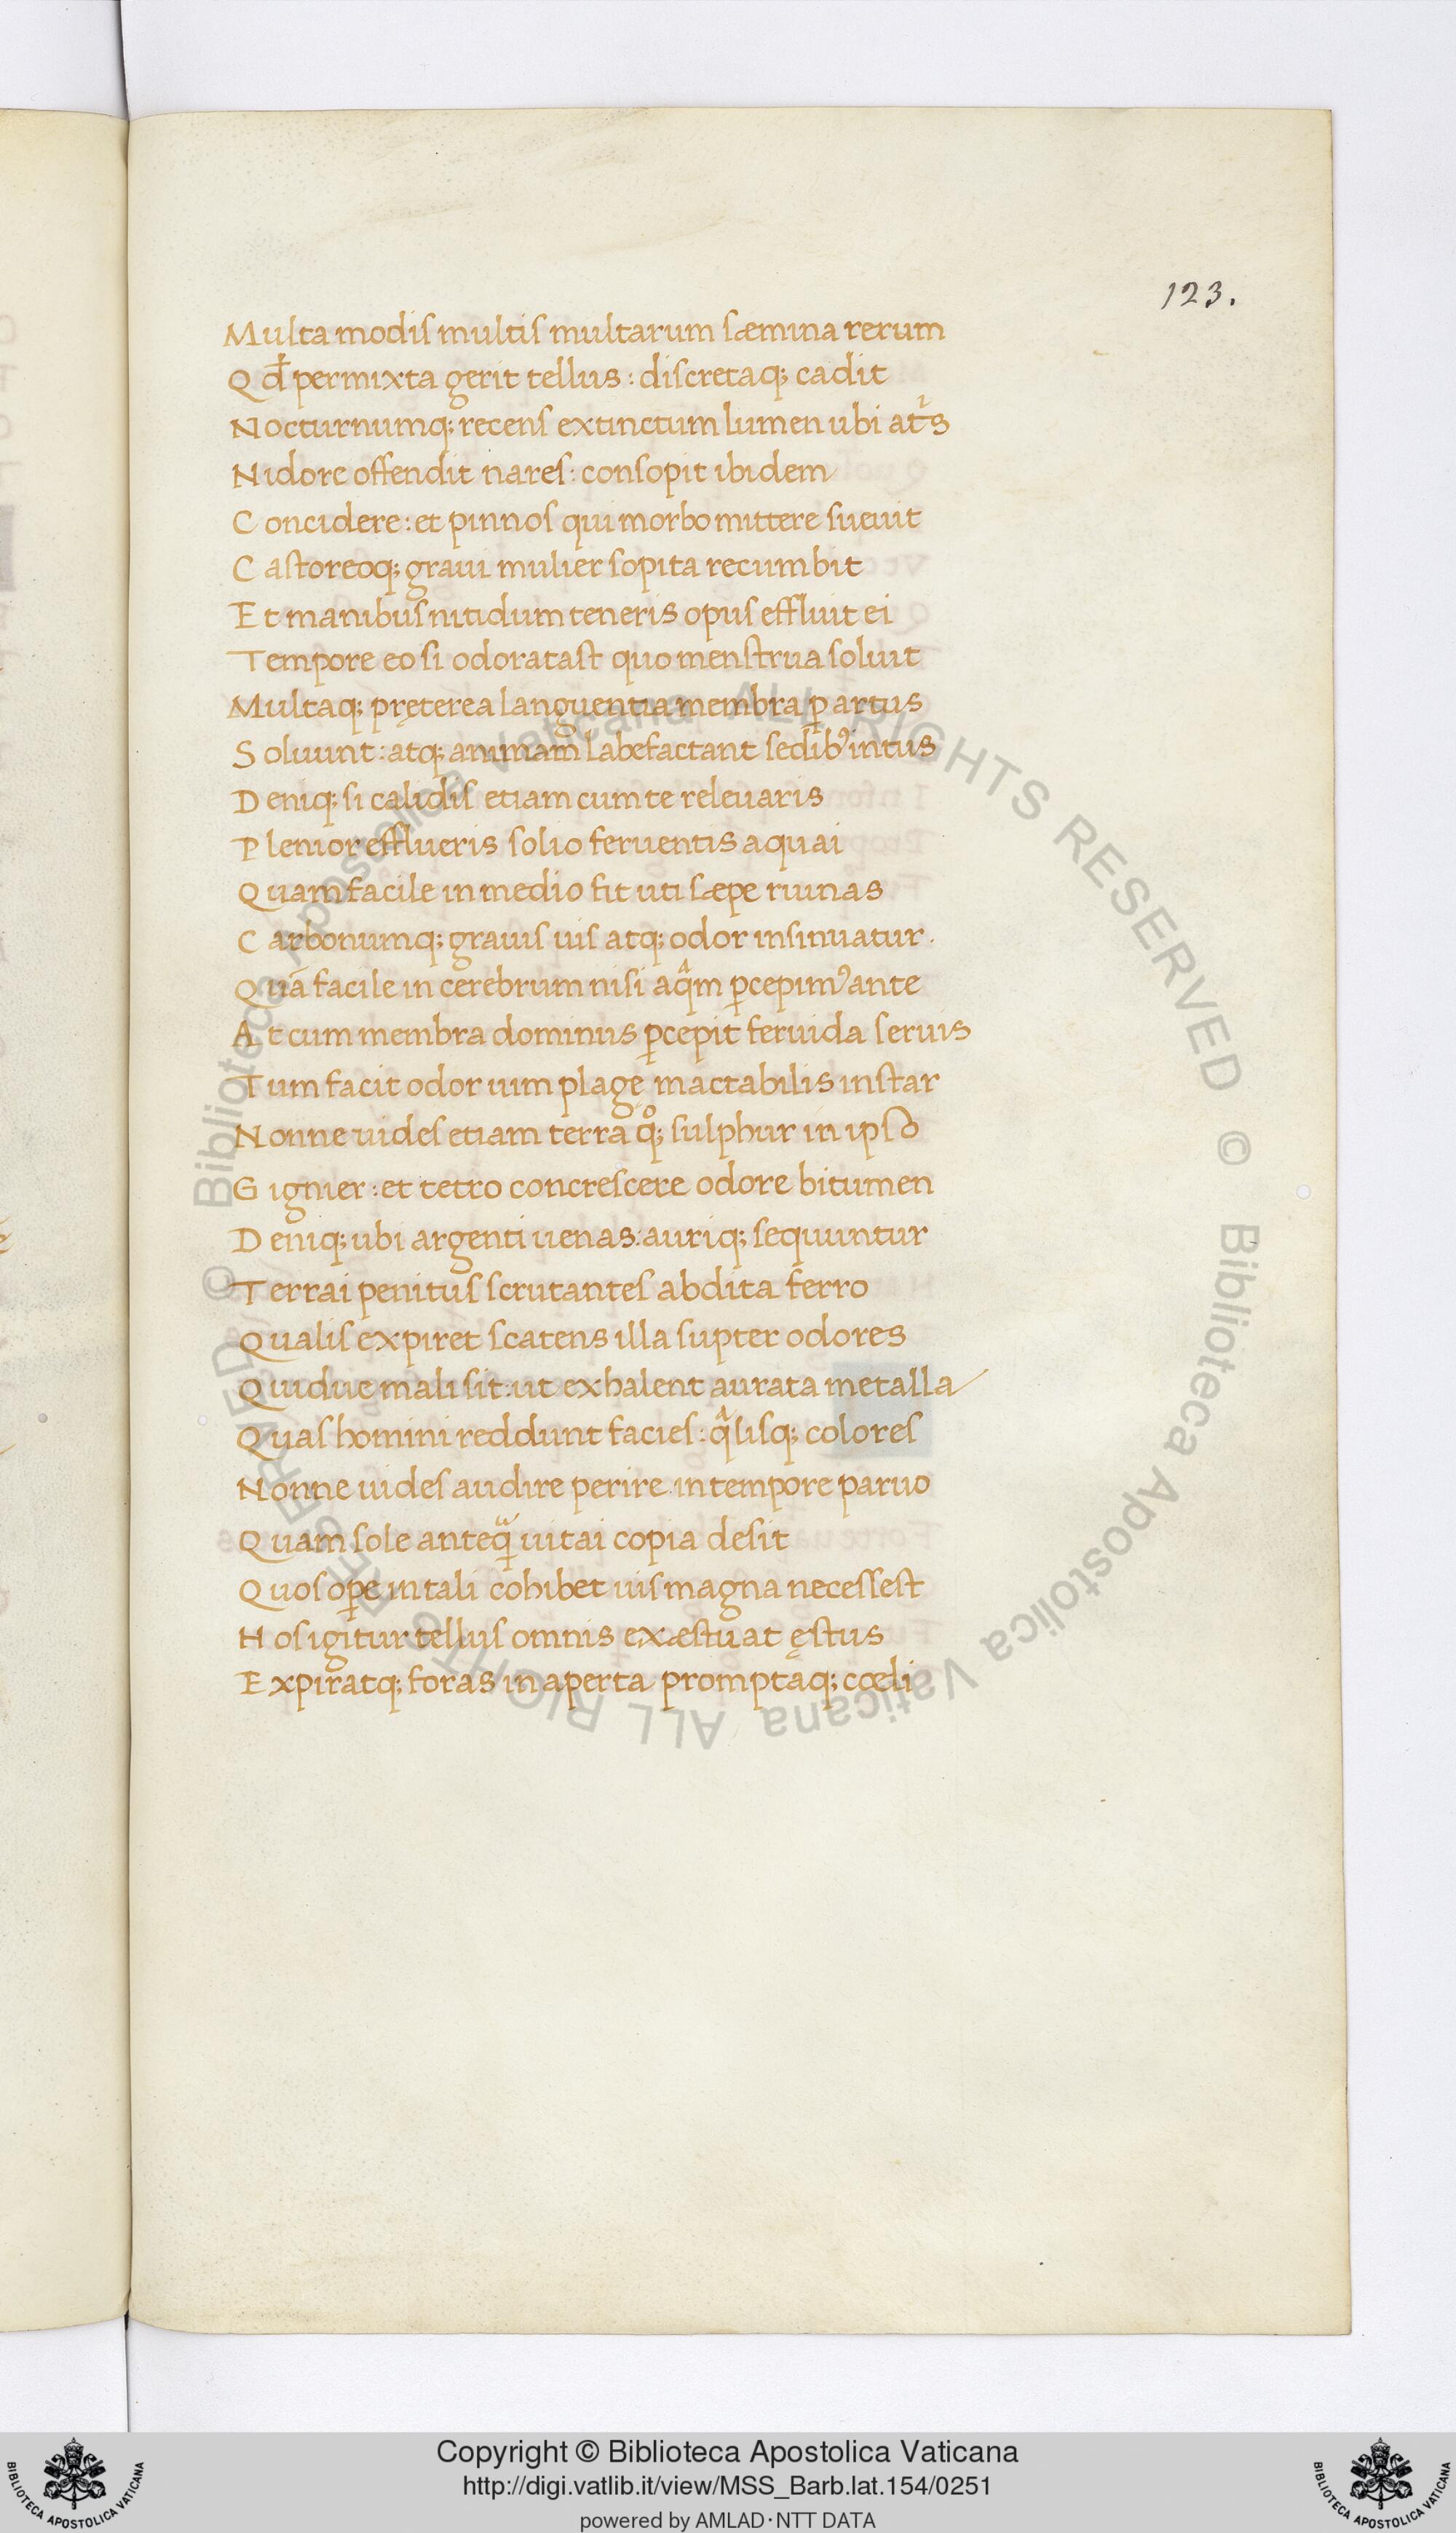 123.
Multa modis multis multarum sæmina rerum
Qđ permixta gerit tellus : discretaq; cadit
Nocturnumq; recens extinctum lumen ubi
Nidore offendit nares : consopit ibidem
Concidere : et pinnos qui morbo mittere sueuit
Castoreoq; graui mulier sopita recumbit
Et manibus nitidum teneris opus effluit ei
Tempore eo si odoratast quo menstrua soluit
Multaq; pręterea languentia membra ꝑ artus
Soluunt : atq; animam labefactant sedibꝰ intus
Deniq; si calidis etiam cum te releuaris
Plenior efflueris solio feruentis aquai
Quam facile in medio fit uti sæpe ruinas
Carbonumq; grauis uis atq; odor insinuatur.
Quā facile in cerebrum nisi aqͣm ꝑcepimꝰ ante
At cum membra dominus ꝑcepit feruida seruis
Tum facit odor uim plagę mactabilis instar
Nonne uides etiam terra qͦ; sulphur in ipso
Gignier : et tetro concrescere odore bitumen
Deniq; ubi argenti uenas : auriq; sequuntur
Terrai penitus scrutantes abdita ferro
Qualis expiret scatens illa supter odores
Quidue mali sit : ut exhalent aurata metalla
Quas homini reddunt facies : qͣlisq; colores
Nonne uides audire perire in tempore paruo
Quam sole anteqͣ uitai copia desit
Quos oꝑe in tali cohibet uis magna necessest
Hos igitur tellus omnis exæstuat ęstus
Expiratq; foras in aperta promptaq; cœli
© Biblioteca Apostolica Vaticana ALL RIGHTS RESERVED © Biblioteca Apostolica Vaticana ALL RIGHTS RESERVED
Copyright © Biblioteca Apostolica Vaticana
http://digi.vatlib.it/view/MSS_Barb.lat.154/0251
powered by AMLAD·NTT DATA
BIBLIOTECA APOSTOLICA VATICANA
BIBLIOTECA APOSTOLICA VATICANA